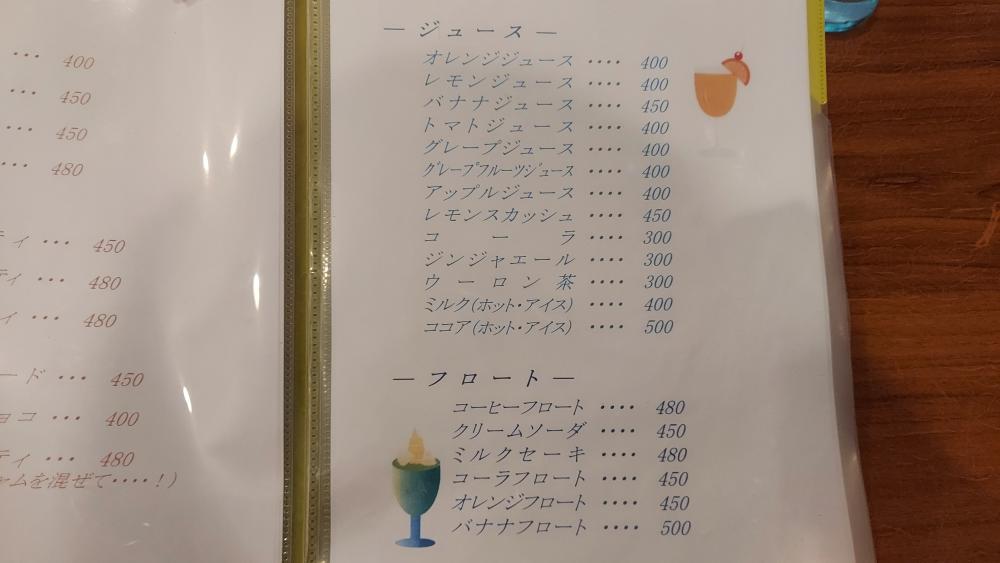 ・・・ 400
・・・ 450
・・・ 450
・・・ 480
ティ ・・・ 450
ティ ・・・ 480
ィ ・・・ 480
ード ・・・ 450
ョコ ・・・ 400
ティ ・・・ 480
ムを混ぜて・・・・！）
― ジュース ―
オレンジジュース ・・・・ 400
レモンジュース ・・・・ 400
バナナジュース ・・・・ 450
トマトジュース ・・・・ 400
グレープジュース ・・・・ 400
グレープフルーツジュース ・・・・ 400
アップルジュース ・・・・ 400
レモンスカッシュ ・・・・ 450
コーラ ・・・・ 300
ジンジャエール ・・・・ 300
ウーロン茶 ・・・・ 300
ミルク(ホット・アイス) ・・・・ 400
ココア(ホット・アイス) ・・・・ 500
― フロート ―
コーヒーフロート ・・・・ 480
クリームソーダ ・・・・ 450
ミルクセーキ ・・・・ 480
コーラフロート ・・・・ 450
オレンジフロート ・・・・ 450
バナナフロート ・・・・ 500